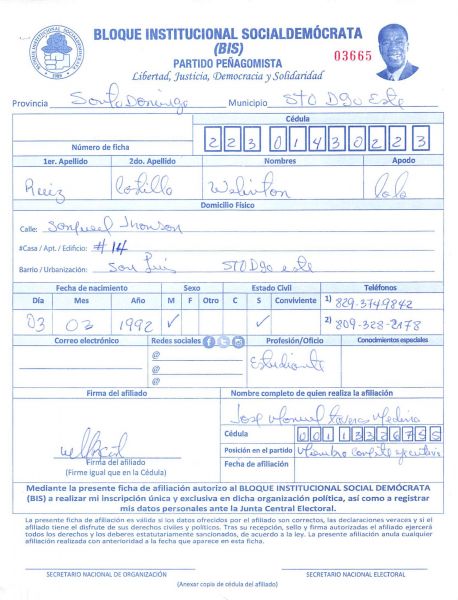 BLOQUE INSTITUCIONAL SOCIALDEMÓCRATA
(BIS)
PARTIDO PEÑAGOMISTA
Libertad, Justicia, Democracia y Solidaridad
03665
Provincia Santo Domingo Municipio STO Dgo Este
Cédula
Número de ficha 22301430223
1er. Apellido 2do. Apellido Nombres Apodo
Ruiz Castillo Welinton lolo
Domicilio Físico
Calle: Jhonson
#Casa / Apt. / Edificio: #14
Barrio / Urbanización: San Luis STO Dgo este
Fecha de nacimiento Sexo Estado Civil Teléfonos
Día Mes Año M F Otro C S Conviviente 1) 829-3749842
03 02 1992 ✓ ✓ 2) 809-328-2178
Correo electrónico Redes sociales Profesión/Oficio Conocimientos especiales
@ Estudiante
@
@
Firma del afiliado Nombre completo de quien realiza la afiliación
Jose Manuel Taveras Medina
Cédula 00113326755
Firma del afiliado Posición en el partido Miembro comite ejecutivo
(Firme igual que en la Cédula) Fecha de afiliación
Mediante la presente ficha de afiliación autorizo al BLOQUE INSTITUCIONAL SOCIAL DEMÓCRATA
(BIS) a realizar mi inscripción única y exclusiva en dicha organización política, así como a registrar
mis datos personales ante la Junta Central Electoral.
La presente ficha de afiliación es válida si los datos ofrecidos por el afiliado son correctos, las declaraciones veraces y si el
afiliado tiene el disfrute de sus derechos civiles y políticos. Tras su recepción, sello y firmas autorizadas el afiliado ejercerá
todos los derechos y los deberes estatutariamente sancionados, de acuerdo a la ley. La presente afiliación anula cualquier
afiliación realizada con anterioridad a la fecha que aparece en esta ficha.
SECRETARIO NACIONAL DE ORGANIZACIÓN SECRETARIO NACIONAL ELECTORAL
(Anexar copia de cédula del afiliado)